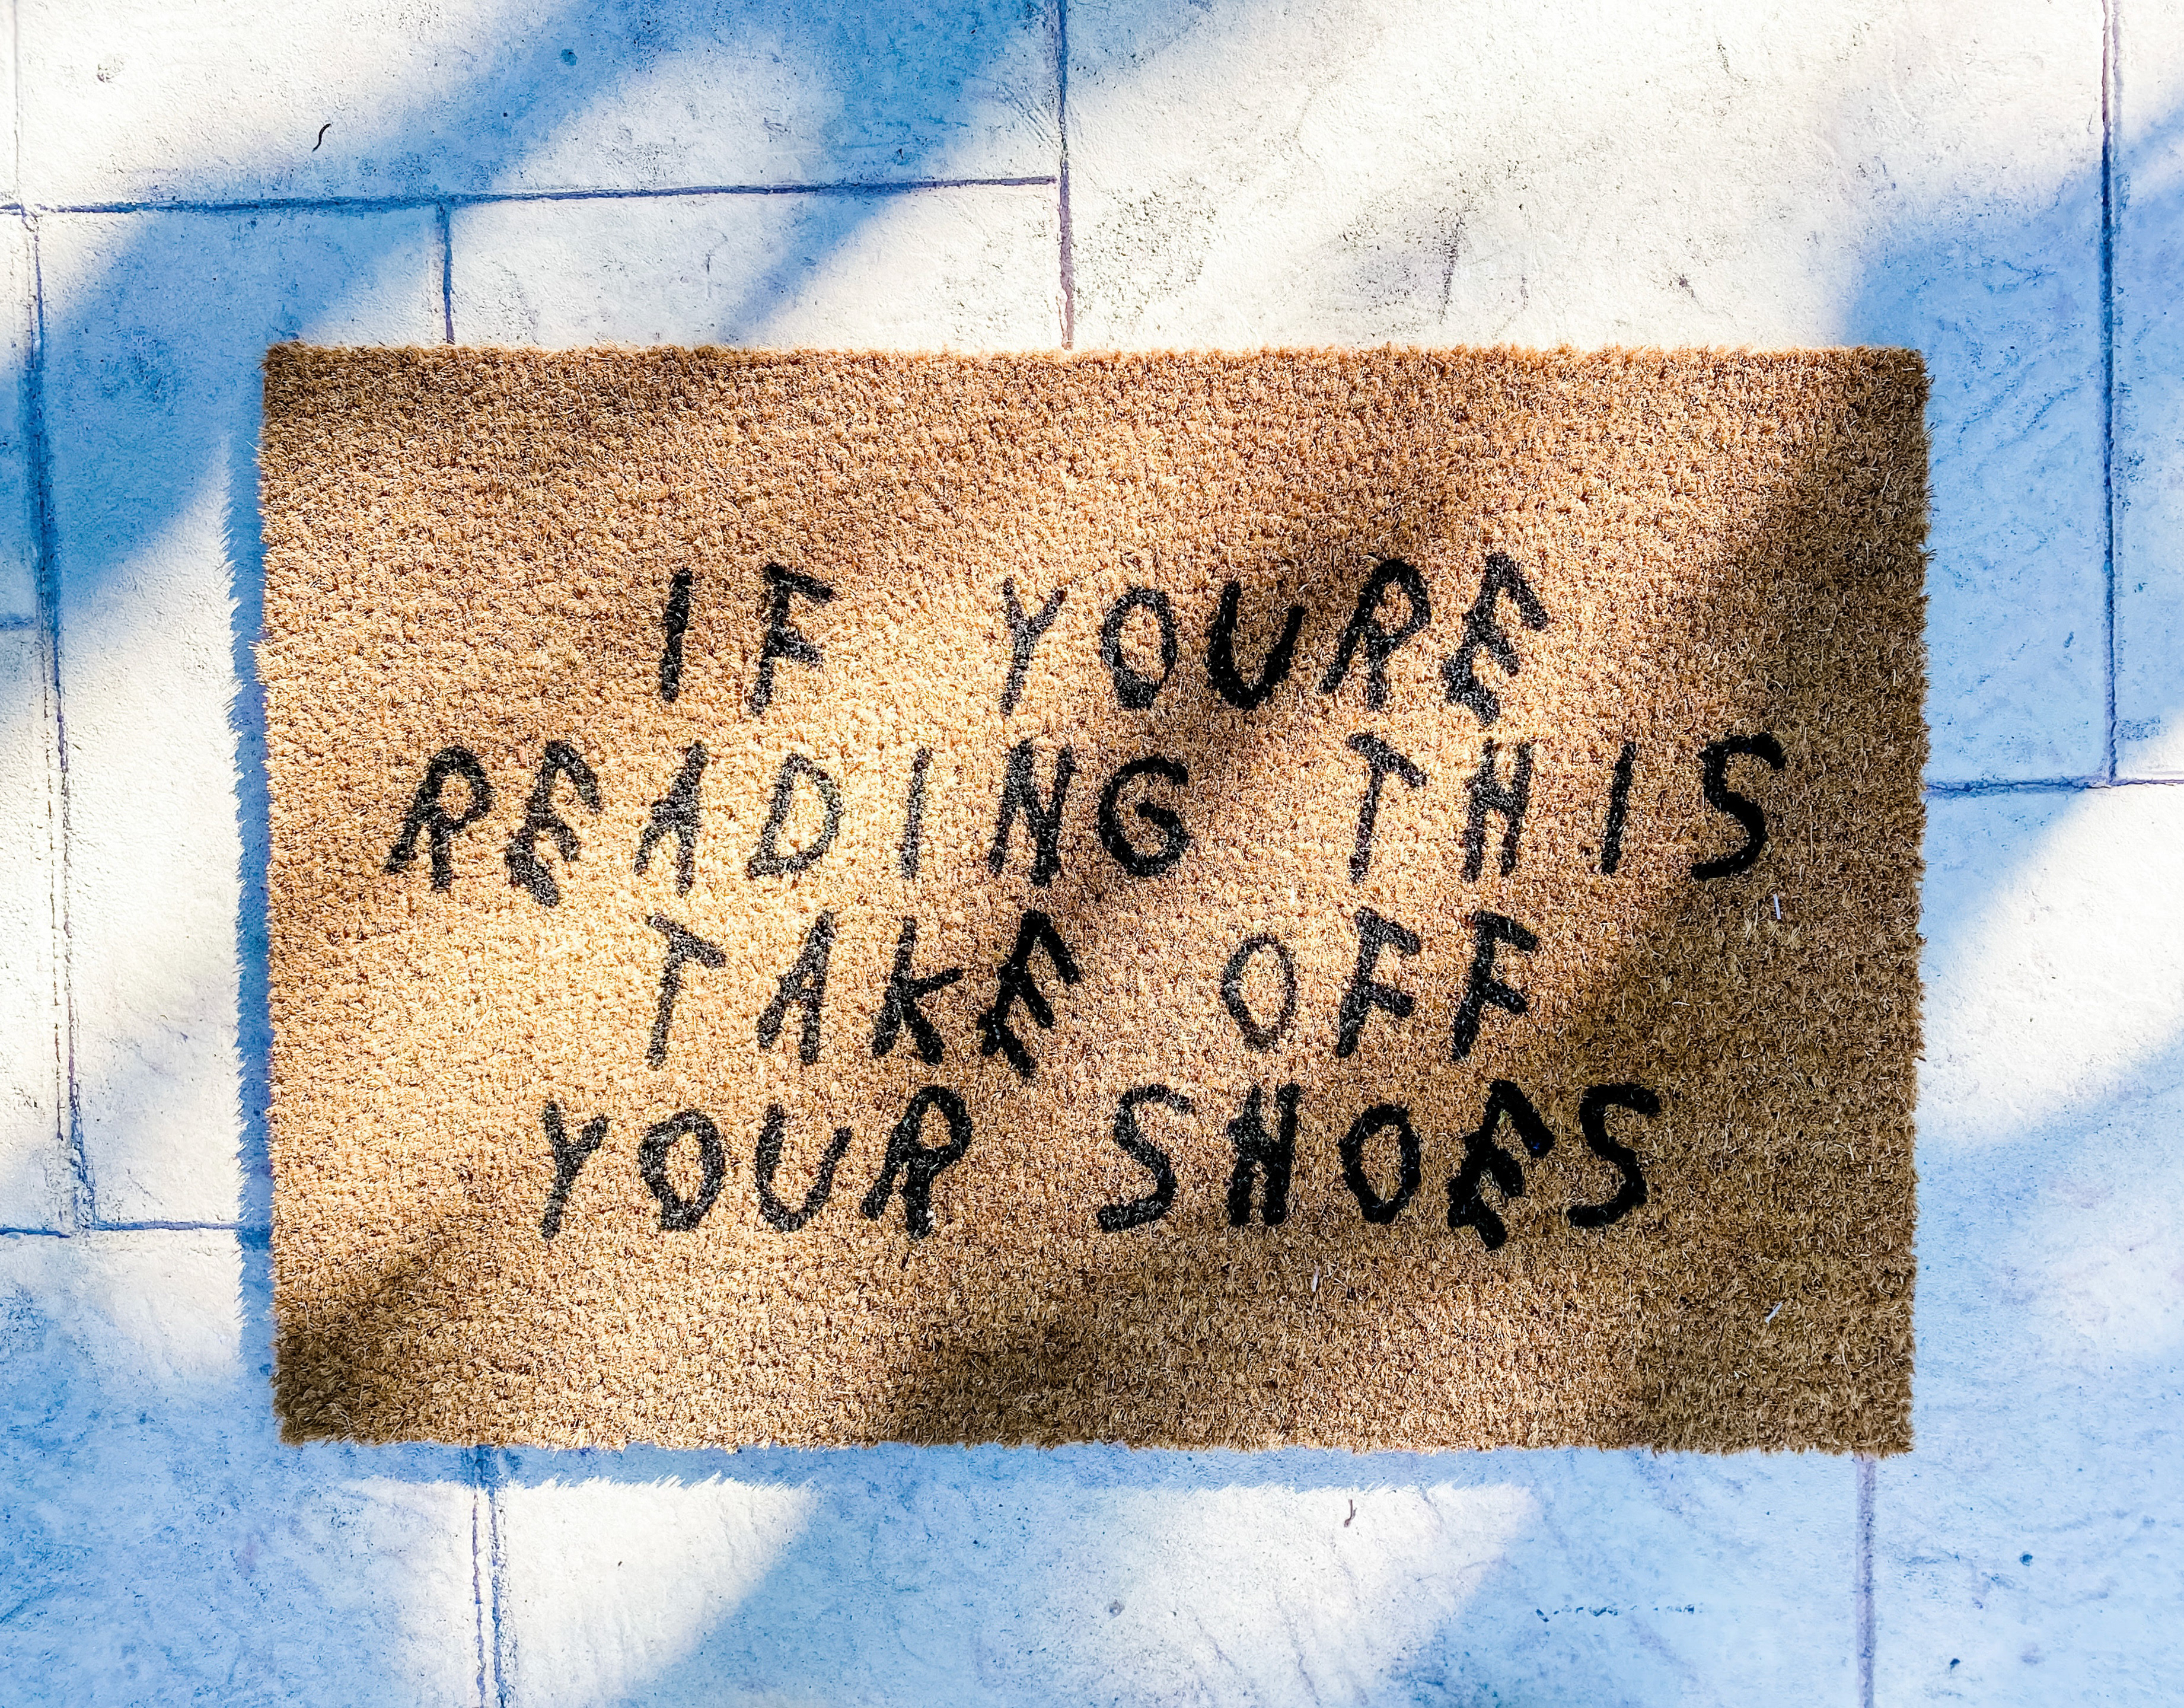 IF YOURE
READING THIS
TAKE OFF
YOUR SHOES